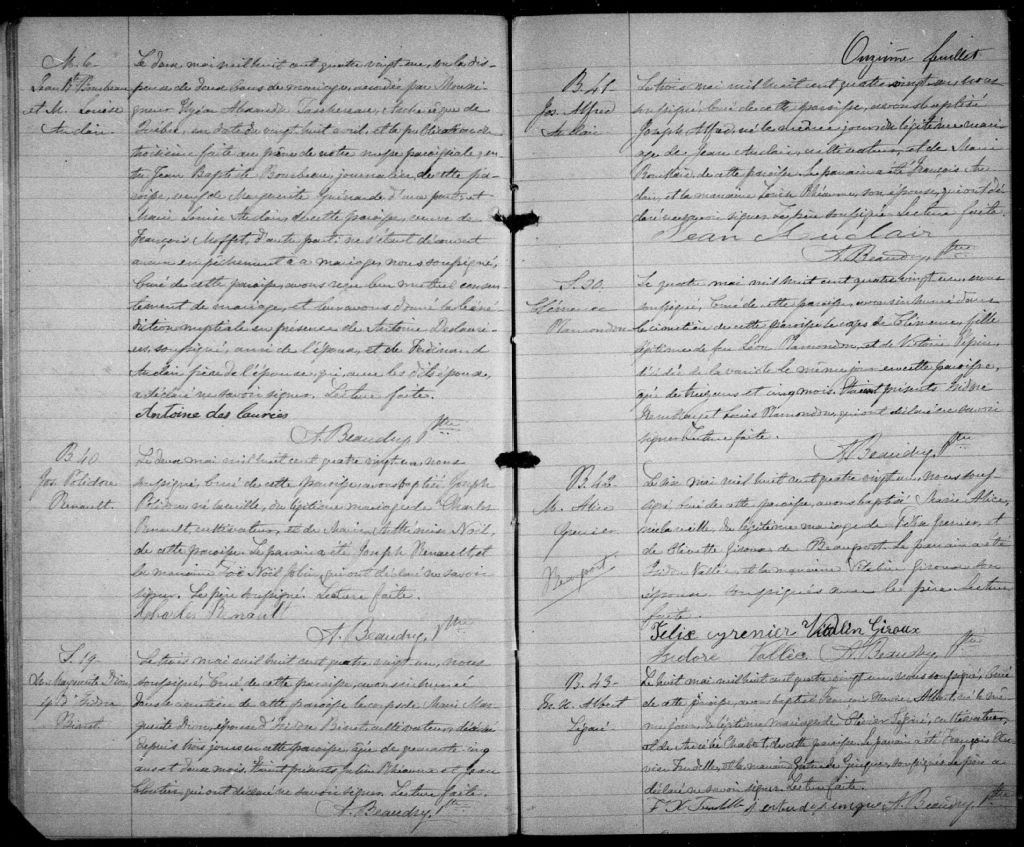 M. 6
Jean Bte Bombeau
et M. Louise
Auclair
Le deux mai mil huit cent quatre vingt un, vu la dis-
pense de deux bans de mariage, accordée par Monsei-
gneur Elzéar Alexandre Taschereau, Archevêque de
Québec, en date du vingt huit avril, et la publication du
troisième faite au prône de notre messe paroissiale, en-
tre Jean Baptiste Bombeau, journalier, de cette pa-
roisse, veuf de Marguerite d'une part, et
Marie Louise Auclair, de cette paroisse, veuve de
François Moffet, d'autre part; ne s'étant découvert
aucun empêchement à ce mariage, nous soussigné,
Curé de cette paroisse, avons reçu leur mutuel consen-
tement de mariage, et leur avons donné la béné-
diction nuptiale en présence de Antoine Deslauri-
ers, soussigné, ami de l'époux, et de Ferdinand
Auclair frère de l'épouse, qui, avec les dits époux,
a déclaré ne savoir signer. Lecture faite.
Antoine des lauriés
A. Beaudry, Ptre
B. 40
Jos. Polidore
Renault.
Le deux mai mil huit cent quatre vingt un, nous
soussigné, Curé de cette paroisse, avons baptisé Joseph
Polidore, né la veille, du légitime mariage de Charles
Renault cultivateur, et de Marie Noël,
de cette paroisse. Le parrain a été Joseph Renault et
la marraine Zoé Noël qui ont déclaré ne savoir
signer. Le père soussigné. Lecture faite.
Renault
A. Beaudry, Ptre
S. 19
M. Marguerite Dion
Isidore
Bisset
Le trois mai mil huit cent quatre vingt un, nous
soussigné, Curé de cette paroisse, avons inhumé
dans le cimetière de cette paroisse le corps de Marie Mar-
guerite Dion, épouse d'Isidore cultivateur, décédée
depuis trois jours en cette paroisse, âgée de quarante cinq
ans et deux mois. Etaient présents Julien Rhéaume et Jean
qui ont déclaré ne savoir signer. Lecture faite.
A. Beaudry, Ptre
Onzième feuillet
B. 41
Jos. Alfred
Auclair
Le trois mai mil huit cent quatre vingt un, nous
soussigné Curé de cette paroisse, avons baptisé
Joseph Alfred, né le du légitime mari-
age de Jean Auclair, cultivateur, et de Marie
de cette paroisse. Le parrain a été François Au-
clair, et la marraine Louise Rhéaume, son épouse, qui ont dé-
claré ne savoir signer. Le père soussigné. Lecture faite.
Jean Auclair
A. Beaudry, Ptre
S. 20
Clémence
Plamondon
Le quatre mai mil huit cent quatre vingt un, nous
soussigné, Curé de cette paroisse, avons inhumé dans
le cimetière de cette paroisse le corps de Clémence, fille
légitime de feu Léon Plamondon, et de Pépin,
décédée de la variole le même jour en cette paroisse,
âgée de treize ans et cinq mois. Etaient présents Isidore
et Louis Plamondon, qui ont déclaré ne savoir
signer. Lecture faite.
A. Beaudry, Ptre
B. 42
M. Alice
Grenier
Beauport
Le six mai mil huit cent quatre vingt un, nous sous-
signé, Curé de cette paroisse, avons baptisé Marie Alice,
née la veille, du légitime mariage de Félix Grenier, et
de Olivette Giroux de Beauport. Le parrain a été
Isidore Vallée, et la marraine Vitaline Giroux son
épouse soussignés avec le père. Lecture
faite.
Felix Grenier Vitalin Giroux
Isidore Vallée A. Beaudry, Ptre
B. 43
Frs. X. Albert
Légaré
Le huit mai mil huit cent quatre vingt un, nous soussigné, Curé
de cette paroisse, avons baptisé François Xavier Albert, né le mê-
me jour, du légitime mariage de Olivier Légaré, cultivateur,
et de Chabot, de cette paroisse. Le parrain a été François Xa-
vier Trudelle, et la marraine soussignés. Le père a
déclaré ne savoir signer. Lecture faite.
F X Trudelle A. Beaudry, Ptre